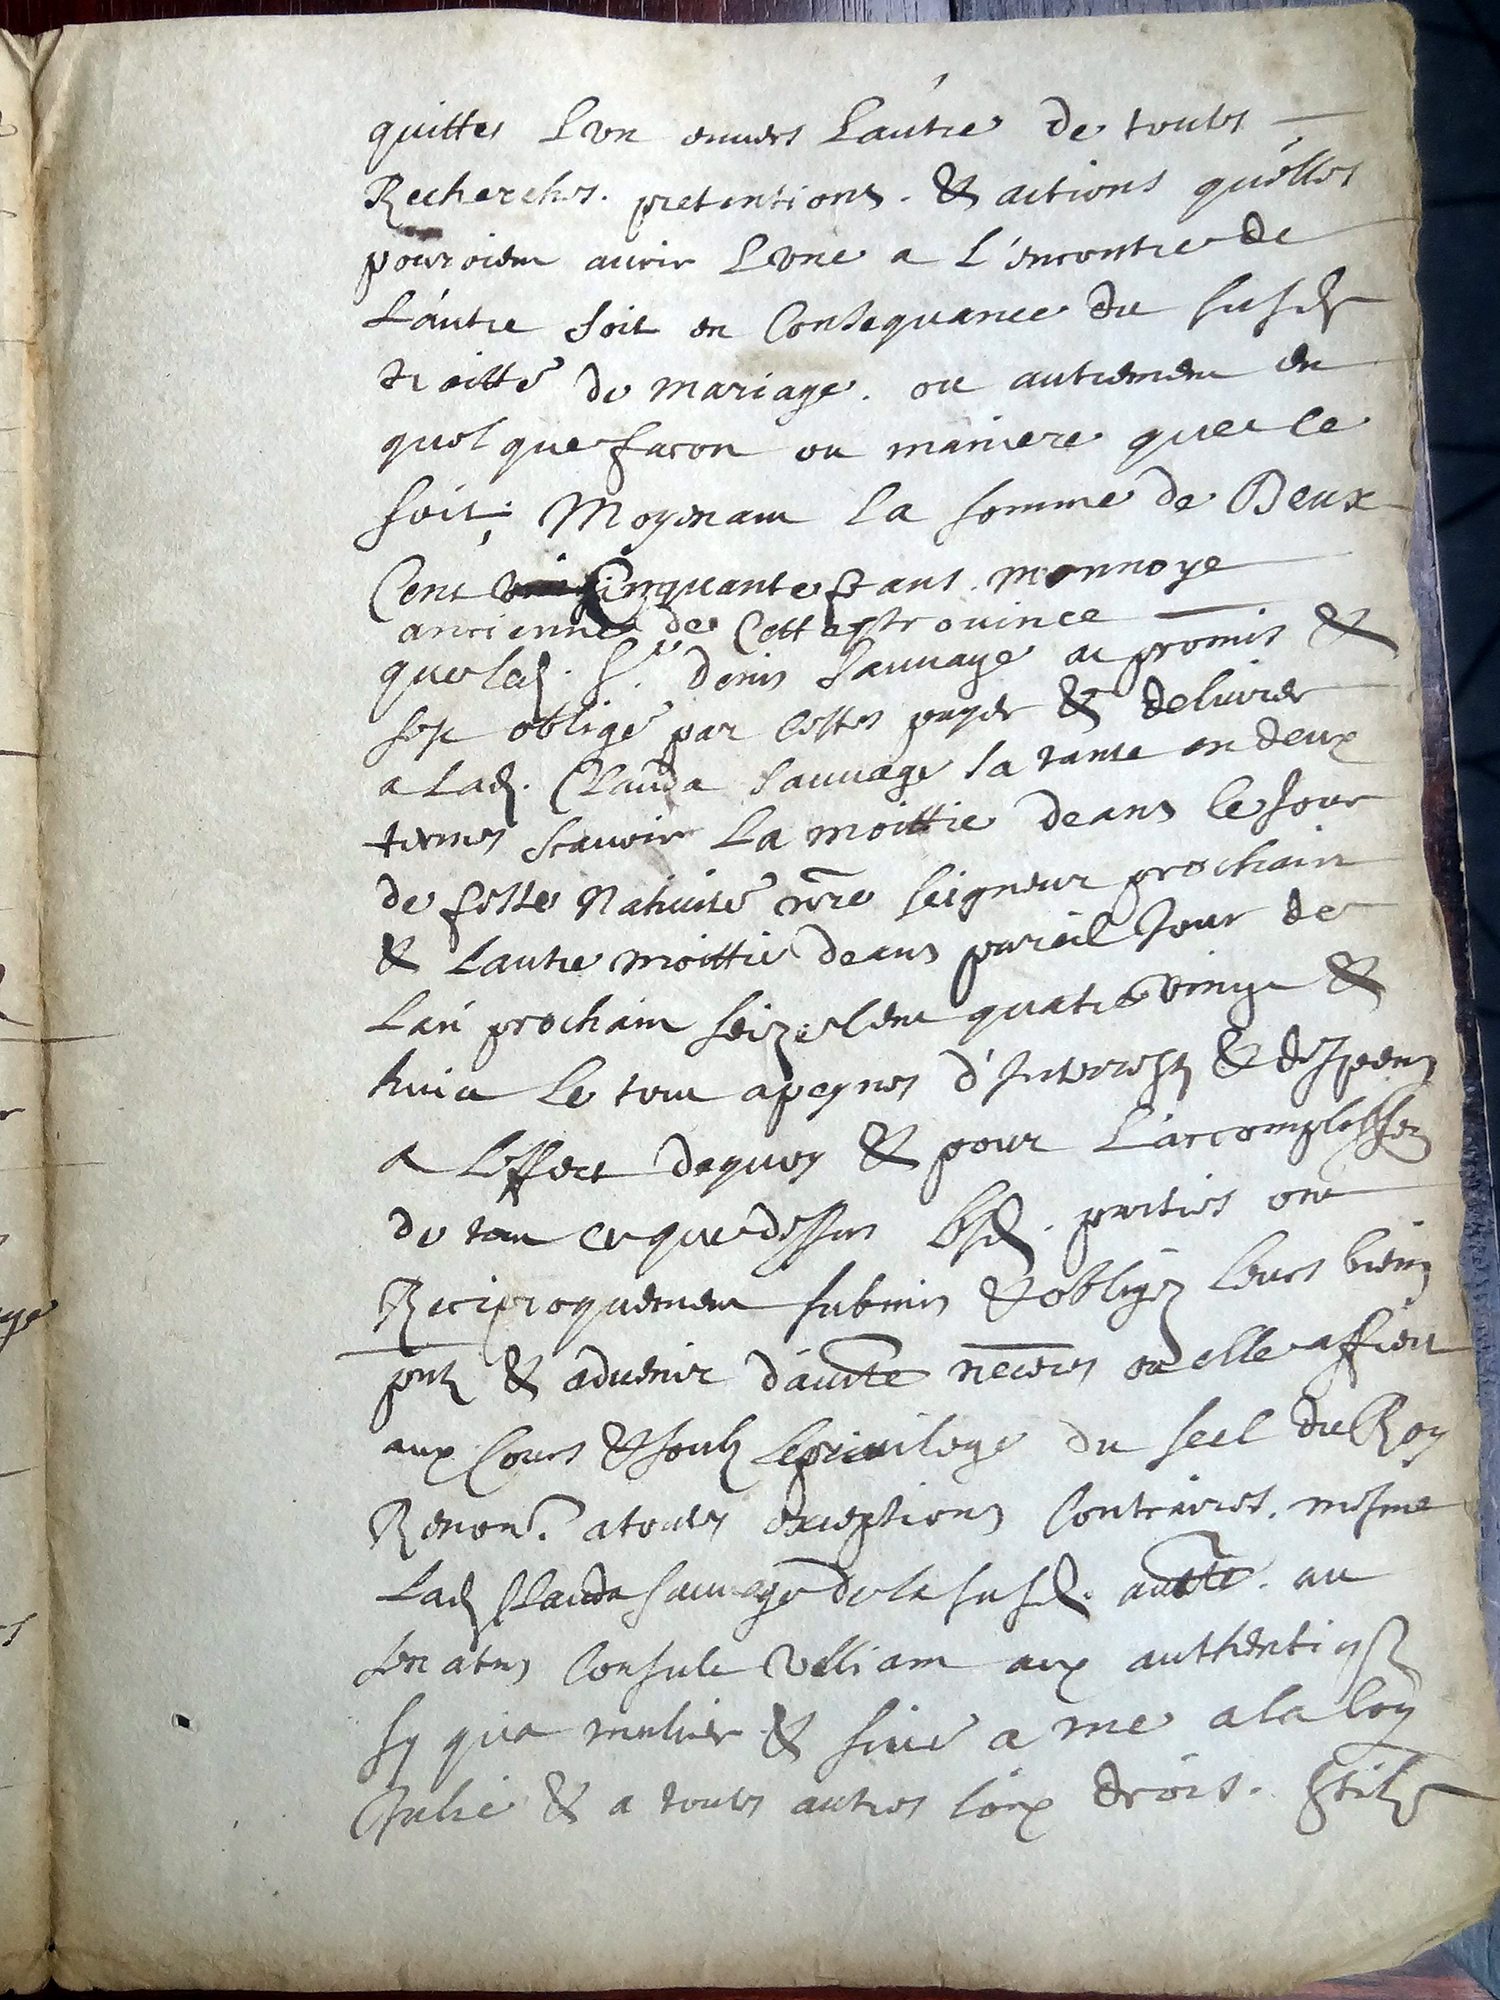 quittes Lvn envers Lautre de toutes
Recherches. pretentions. & actions qu'elles
pouroient avoir Lvne a L'encontre de
Lautre soit en Consequance du susd
traitté de mariage. ou autrement en
quelque facon ou maniere que ce
soit; Moyenant la somme de Deux
Cent Cinquante frans monnoye
ancienne de Cette province
que led. Sr. denis Sauvage at promis &
sest obligé par Cestes payer & delivrer
a Lad. Clauda Sauvage sa tante en deux
termes scavoir La moittie deans le Jour
de feste Nativité nre seigneur prochain
& Lautre moittie deans pareil Jour de
Lan prochain seize Cent quatre vingt &
huict Le tout a peynes d'Interestz & despens
a Leffect dequoy & pour L'accomplissem
de tout ce que dessus lesd. parties ont
Reciproquement submis & obligez leurs biens
pntz & advenir d'aucte necess ou elle affiert
aux Cours & soubz Le privilege du seel du Roy
Renon. a toutes exceptions Contraires. mesme
Lad Clauda sauvage de la susd. aucte. au
senatus Consule Velliam aux authentiq
sy qua mulier & sive a me a la loy
Julie & a toutes autres loix drois. stil